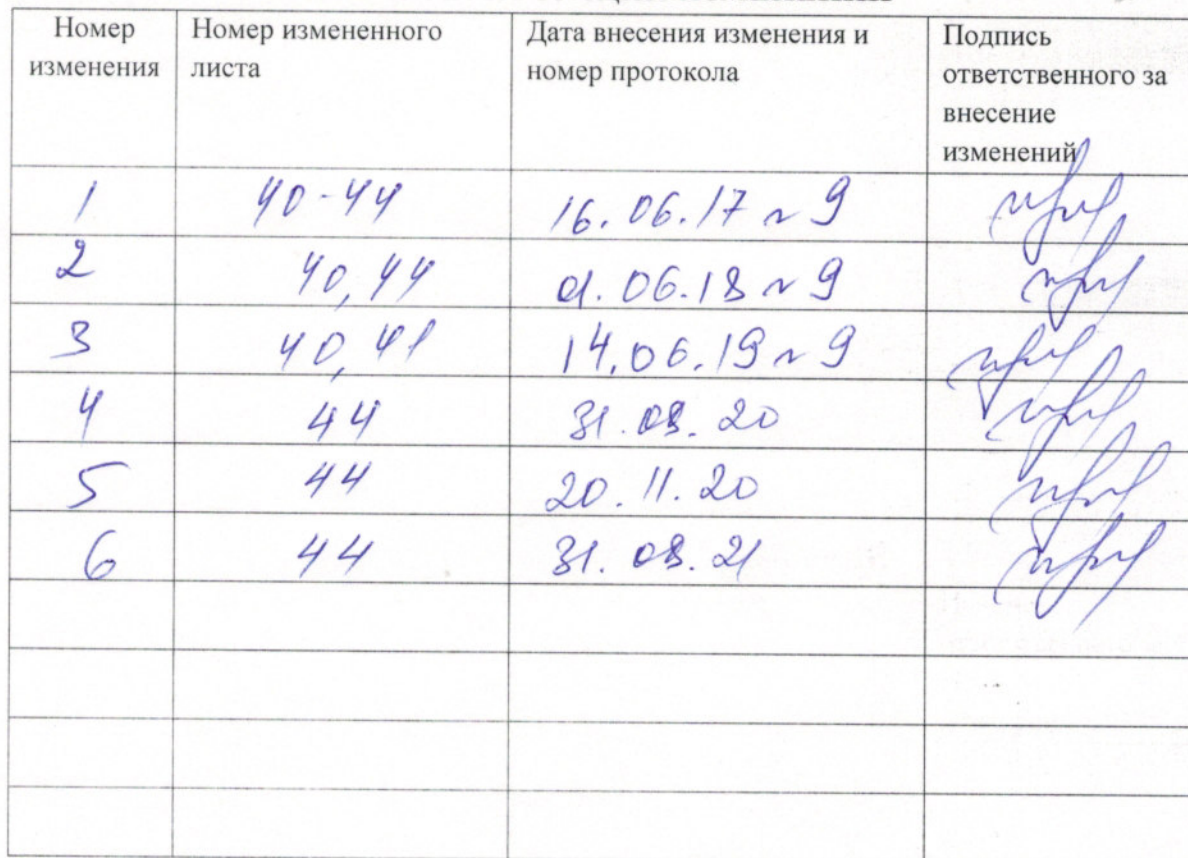 Номер изменения | Номер измененного листа | Дата внесения изменения и номер протокола | Подпись ответственного за внесение изменений
1 | 40-44 | 16.06.17 № 9
2 | 40,44 | 01.06.18 № 9
3 | 40,41 | 14.06.19 № 9
4 | 44 | 31.08.20
5 | 44 | 20.11.20
6 | 44 | 31.08.21